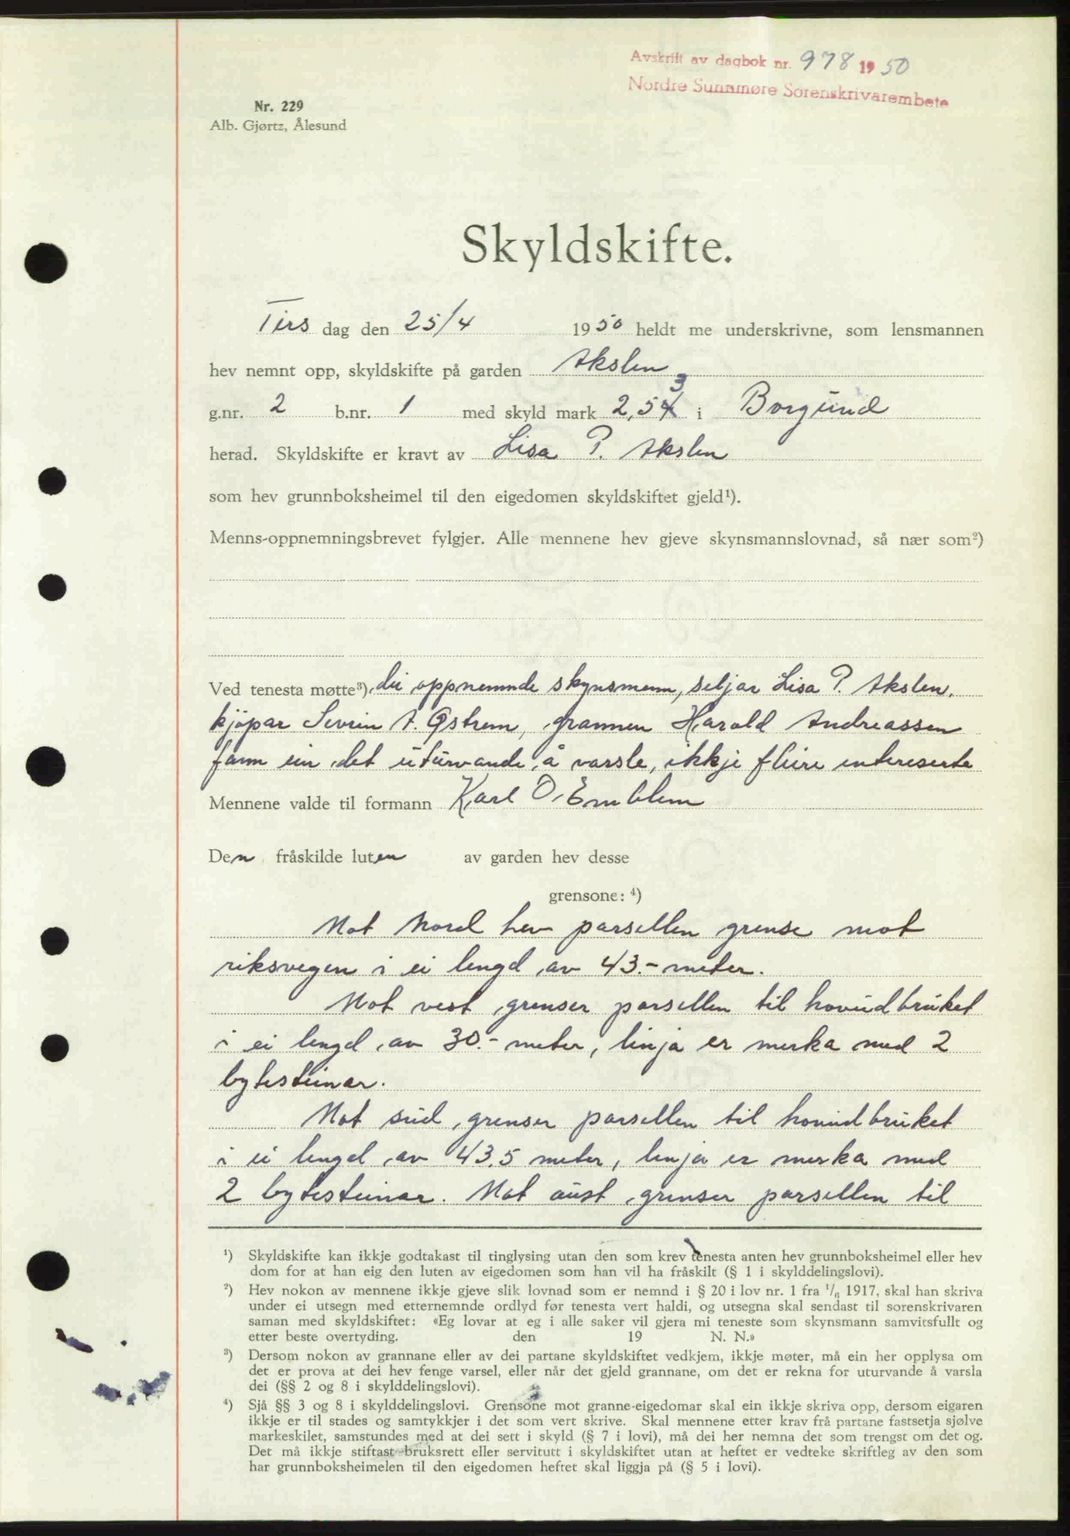 Avskrift av dagbok nr. 978 1950
Nordre Sunnmøre Sorenskrivarembete
Nr. 229
Alb. Gjørtz, Ålesund
Skyldskifte.
Tirsdag den 25/4 1950 heldt me underskrivne, som lensmannen
hev nemnt opp, skyldskifte på garden Akslen
g.nr. 2 b.nr. 1 med skyld mark 2,53 i Borgund
herad. Skyldskifte er kravt av Lisa P. Akslen
som hev grunnboksheimel til den eigedomen skyldskiftet gjeld¹).
Menns-oppnemningsbrevet fylgjer. Alle mennene hev gjeve skynsmannslovnad, så nær som²)
Ved tenesta møtte³) dei oppnemnde skynsmenn, seljar Lisa P. Akslen,
kjøpar Sevrin A. Østrem, grannen Harald Andreassen
fann ein det uturvande å varsle, ikkje fleire intereserte
Mennene valde til formann Karl O. Emblem
Den fråskilde luten av garden hev desse
grensone: ⁴)
Mot Nord hev parsellen grense mot
riksvegen i ei lengd av 43.- meter.
Mot vest grenser parsellen til hovudbruket
i ei lengd av 30.- meter, linja er merka med 2
bytesteinar.
Mot sud grenser parsellen til hovudbruket
i ei lengd av 43,5 meter, linja er merka med
2 bytesteinar. Mot aust grenser parsellen til
¹) Skyldskifte kan ikkje godtakast til tinglysing utan den som krev tenesta anten hev grunnboksheimel eller hev
dom for at han eig den luten av eigedomen som han vil ha fråskilt (§ 1 i skylddelingslovi).
²) Hev nokon av mennene ikkje gjeve slik lovnad som er nemnd i § 20 i lov nr. 1 fra 1/6 1917, skal han skriva
under ei utsegn med etternemnde ordlyd før tenesta vert haldi, og utsegna skal sendast til sorenskrivaren
saman med skyldskiftet: «Eg lovar at eg i alle saker vil gjera mi teneste som skynsmann samvitsfullt og
etter beste overtyding. den 19 N. N.»
³) Dersom nokon av grannane eller av dei partane skyldskiftet vedkjem, ikkje møter, må ein her opplysa om
det er prova at dei hev fenge varsel, eller når det gjeld grannane, om det er rekna for uturvande å varsla
dei (§§ 2 og 8 i skylddelingslovi).
⁴) Sjå §§ 3 og 8 i skylddelingslovi. Grensone mot granne-eigedomar skal ein ikkje skriva opp, dersom eigaren
ikkje er til stades og samtykkjer i det som vert skrive. Skal mennene etter krav frå partane fastsetja sjølve
markeskilet, samstundes med at dei sett i skyld (§ 7 i lovi), må dei her nemna det som trengst om det og.
Det må ikkje stiftast bruksrett eller servitutt i skyldskiftet utan at heftet er vedteke skriftleg av den som
har grunnboksheimelen til den eigedomen heftet skal liggja på (§ 5 i lovi).